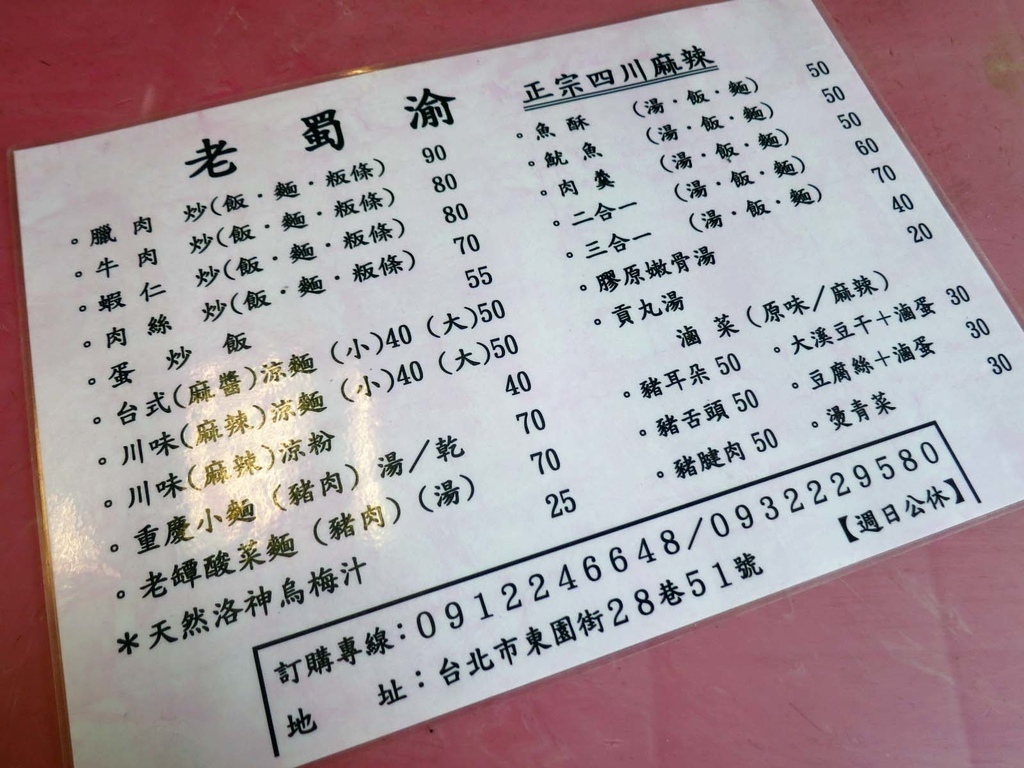 老蜀渝
正宗四川麻辣
。臘肉 炒(飯·麵·粄條) 90
。牛肉 炒(飯·麵·粄條) 80
。蝦仁 炒(飯·麵·粄條) 80
。肉絲 炒(飯·麵·粄條) 70
。蛋炒飯 55
。台式(麻醬)涼麵 (小)40 (大)50
。川味(麻辣)涼麵 (小)40 (大)50
。川味(麻辣)涼粉 40
。重慶小麵(豬肉)湯/乾 70
。老罈酸菜麵(豬肉)(湯) 70
*天然洛神烏梅汁 25
。魚酥 (湯·飯·麵) 50
。魷魚 (湯·飯·麵) 50
。肉羹 (湯·飯·麵) 50
。二合一 (湯·飯·麵) 60
。三合一 (湯·飯·麵) 70
。膠原嫩骨湯 40
。貢丸湯 20
滷菜(原味/麻辣)
。豬耳朵 50 。大溪豆干+滷蛋 30
。豬舌頭 50 。豆腐絲+滷蛋 30
。豬腱肉 50 。燙青菜 30
訂購專線:0912246648/0932229580
地址:台北市東園街28巷51號 【週日公休】